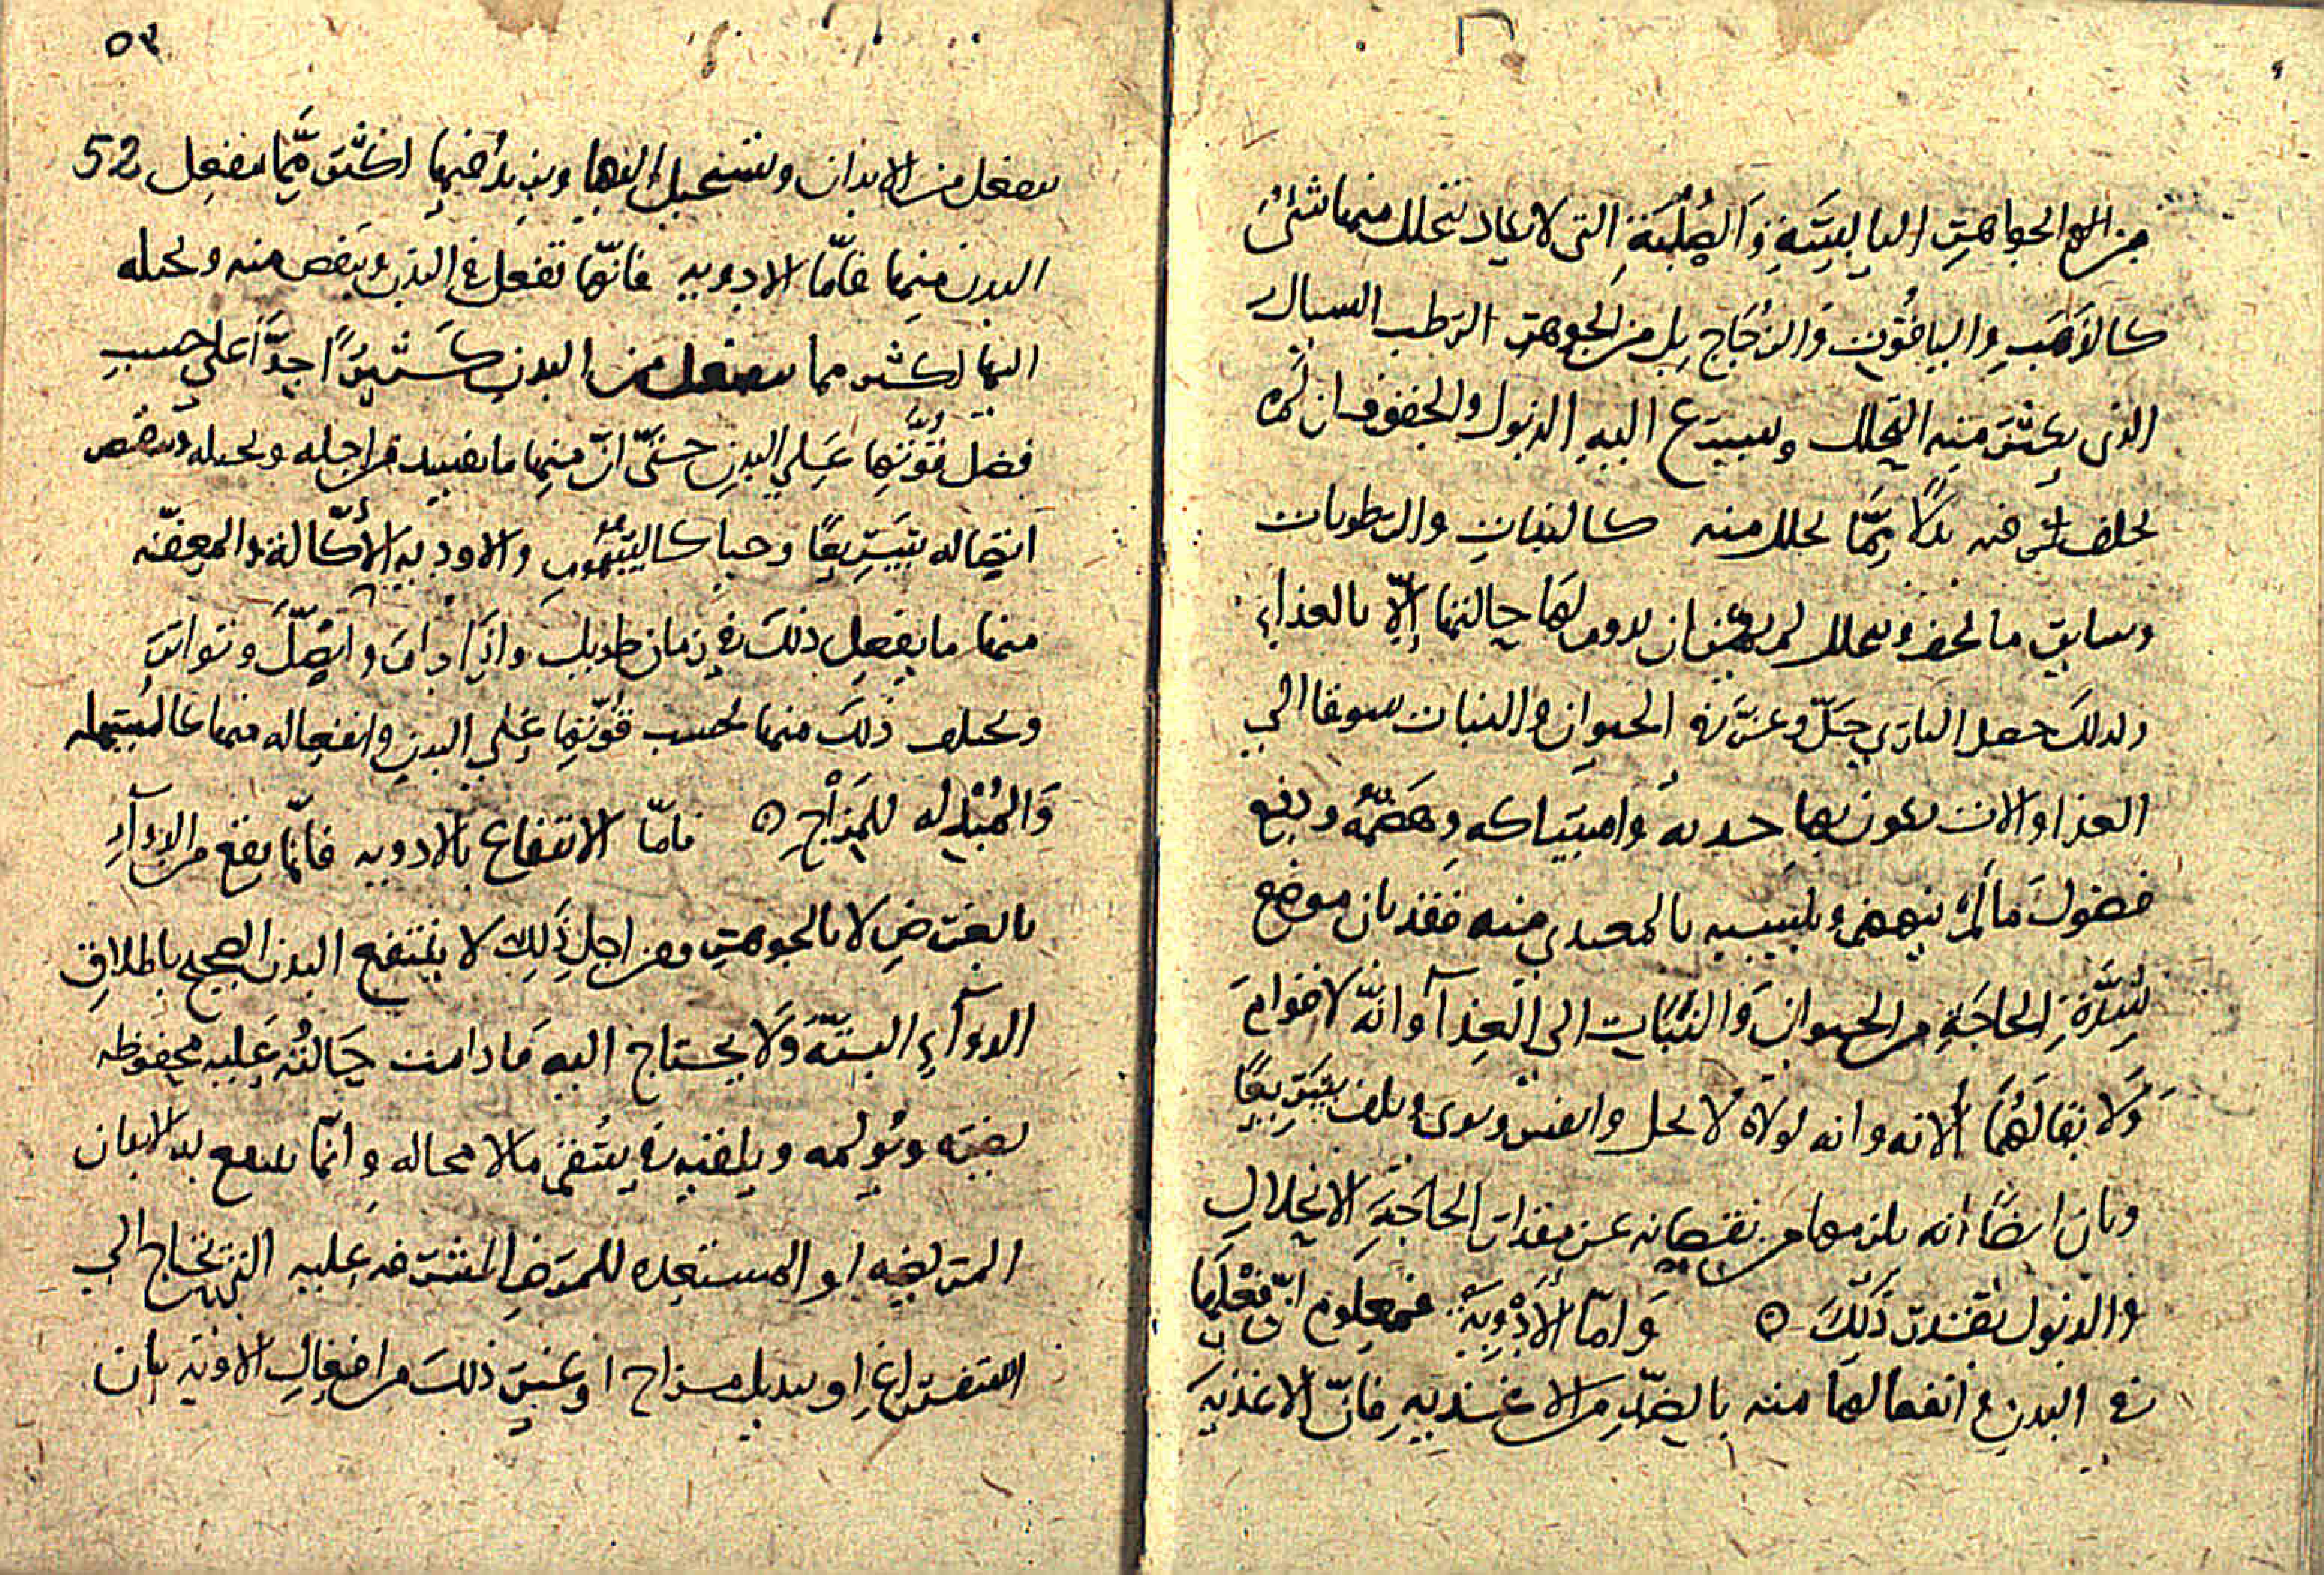 من الجواهر اليابسة والصلبة التي لا يكاد تتحلل منها شئ
كالذهب والياقوت والزجاج بل من الجوهر الرطب السيال
الذي يكثر منه التحلل ويسرع اليه الذبول والجفوف ان لم
يخلف شي فيه بدلا مما تحلل منه كالنبات والرطوبات
وسايق ما يجف ويتحلل لم يمكن ان يدوم لها حالتها إلا بالغذاء
ولذلك جعل الباري جل وعز في الحيوان والنبات شوقا الي
الغذا والات يكون بها جذبه وامتساكه وهضمه ودفع
فضول ما لم ينهضم ويلتبس بالمغتذي منه فقد بان موضع
شدة الحاجة من الحيوان والنبات الى الغذآ وانه لا قوام
ولا بقا لهما الا به وانه لولاه لانحل وانفش وتوى وتلف سريعا
وبان ايضا انه يلزمهما من نقصانه عن مقدار الحاجة الانحلال
والذبول بقدر ذلك ٥ وامّا الأدوية فمعلوم انّ فعلها
في البدن و انفعالها منه بالضد من الاغذيه فانّ الاغذيه
٥٢
52
تنفعل من الابدان وتستحيل اليها ويزيد فيها اكثر ممّا ينفعل
البدن منها فامّا الادويه فانّها تفعل في البدن وينقص منه وتحيله
اليها اكثر مما تنفعل من البدن كثيرًا جدًّا على حسب
فضل قوّتها على البدن حتّى انّ منها ما يفسد من اجله وتحيله وينقض
اتصاله سريعًا وحيا كالسموم والاودبه الأكّالة والمعفّنه
منها ما يفعل ذلك في زمان طويل واذا دام واتصل وتواتر
ويختلف ذلك منها بحسب قوّتها على البدن وانفعاله منها كالمسهله
والمبدله للمزاج ٥ فامّا الانتفاع بالادويه فانّما يقع من الدوآء
بالعرض لا بالجوهر ومن اجل ذلك لا ينتفع البدن الصحيح باطلاق
الدوآء البتّة ولا يحتاج اليه ما دامت حالته عليه محفوظه
يضره ويؤلمه ويلقيه في سقم ما لا محاله وانّما ينتفع به الابدان
المريضه او المستعده للمرض المشرفه عليه التي تحتاج الي
استفراغ او تبديل مزاج او غير ذلك من افعال الادويه بان